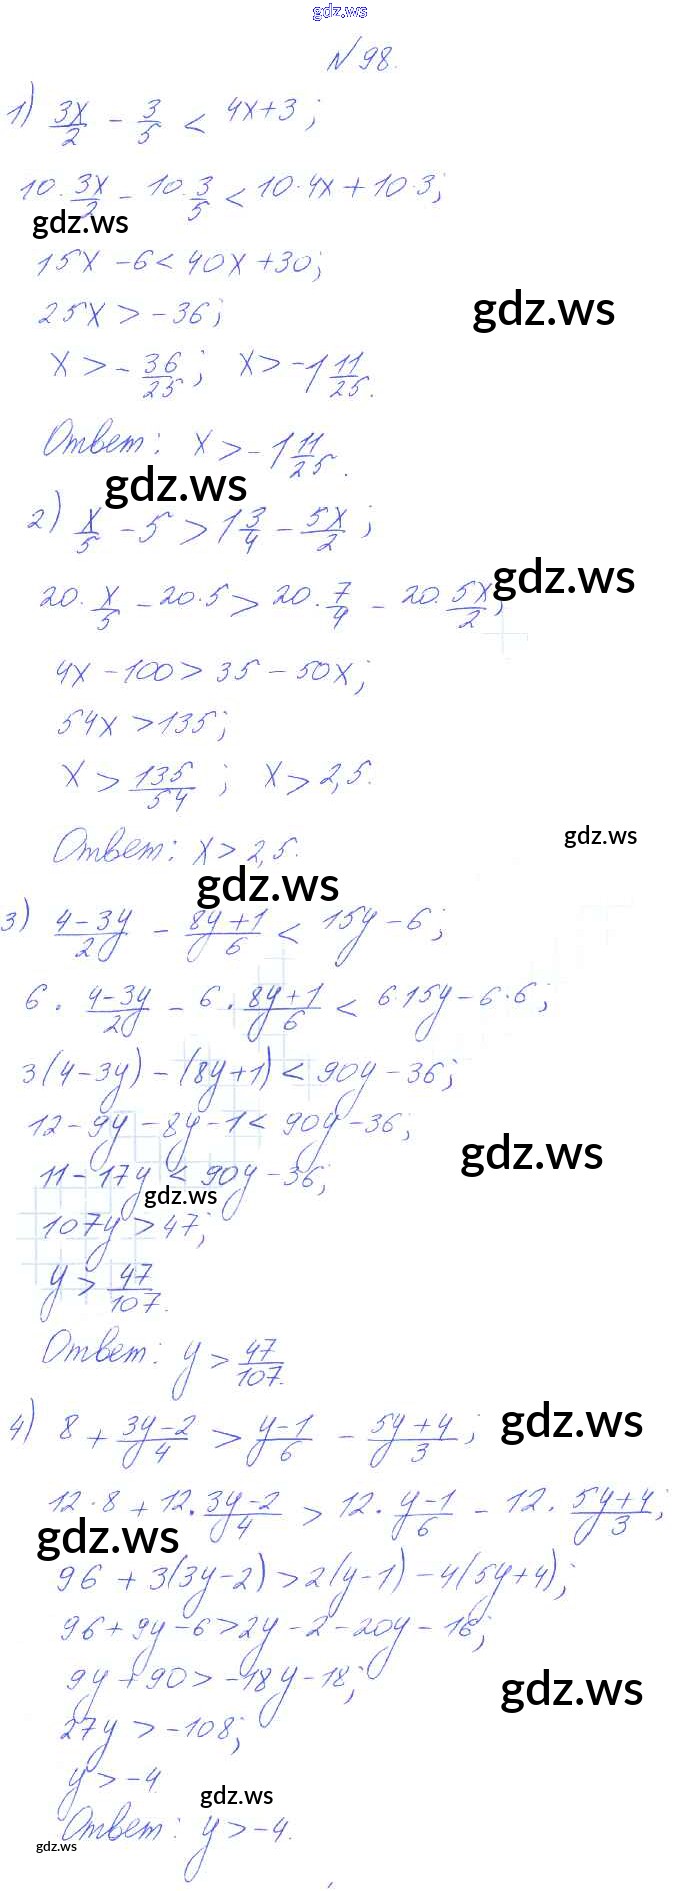 gdz.ws
N 98.
1) 3x/2 - 3/5 < 4x+3;
10·3x/2 - 10·3/5 < 10·4x + 10·3;
gdz.ws
15x - 6 < 40x + 30;
25x > -36;
gdz.ws
x > -36/25; x > -1 11/25.
Ответ: x > -1 11/25.
gdz.ws
2) x/5 - 5 > 1 3/4 - 5x/2;
gdz.ws
20·x/5 - 20·5 > 20·7/4 - 20·5x/2;
4x - 100 > 35 - 50x;
54x > 135;
x > 135/54; x > 2,5.
gdz.ws
Ответ: x > 2,5.
gdz.ws
3) (4-3y)/2 - (8y+1)/6 < 15y - 6;
6·(4-3y)/2 - 6·(8y+1)/6 < 6·15y - 6·6;
3(4-3y) - (8y+1) < 90y - 36;
12 - 9y - 8y - 1 < 90y - 36;
gdz.ws
11 - 17y < 90y - 36;
gdz.ws
107y > 47;
y > 47/107.
Ответ: y > 47/107.
gdz.ws
4) 8 + (3y-2)/4 > (y-1)/6 - (5y+4)/3;
12·8 + 12·(3y-2)/4 > 12·(y-1)/6 - 12·(5y+4)/3;
gdz.ws
96 + 3(3y-2) > 2(y-1) - 4(5y+4);
96 + 9y - 6 > 2y - 2 - 20y - 16;
9y + 90 > -18y - 18;
gdz.ws
27y > -108;
y > -4.
gdz.ws
Ответ: y > -4.
gdz.ws